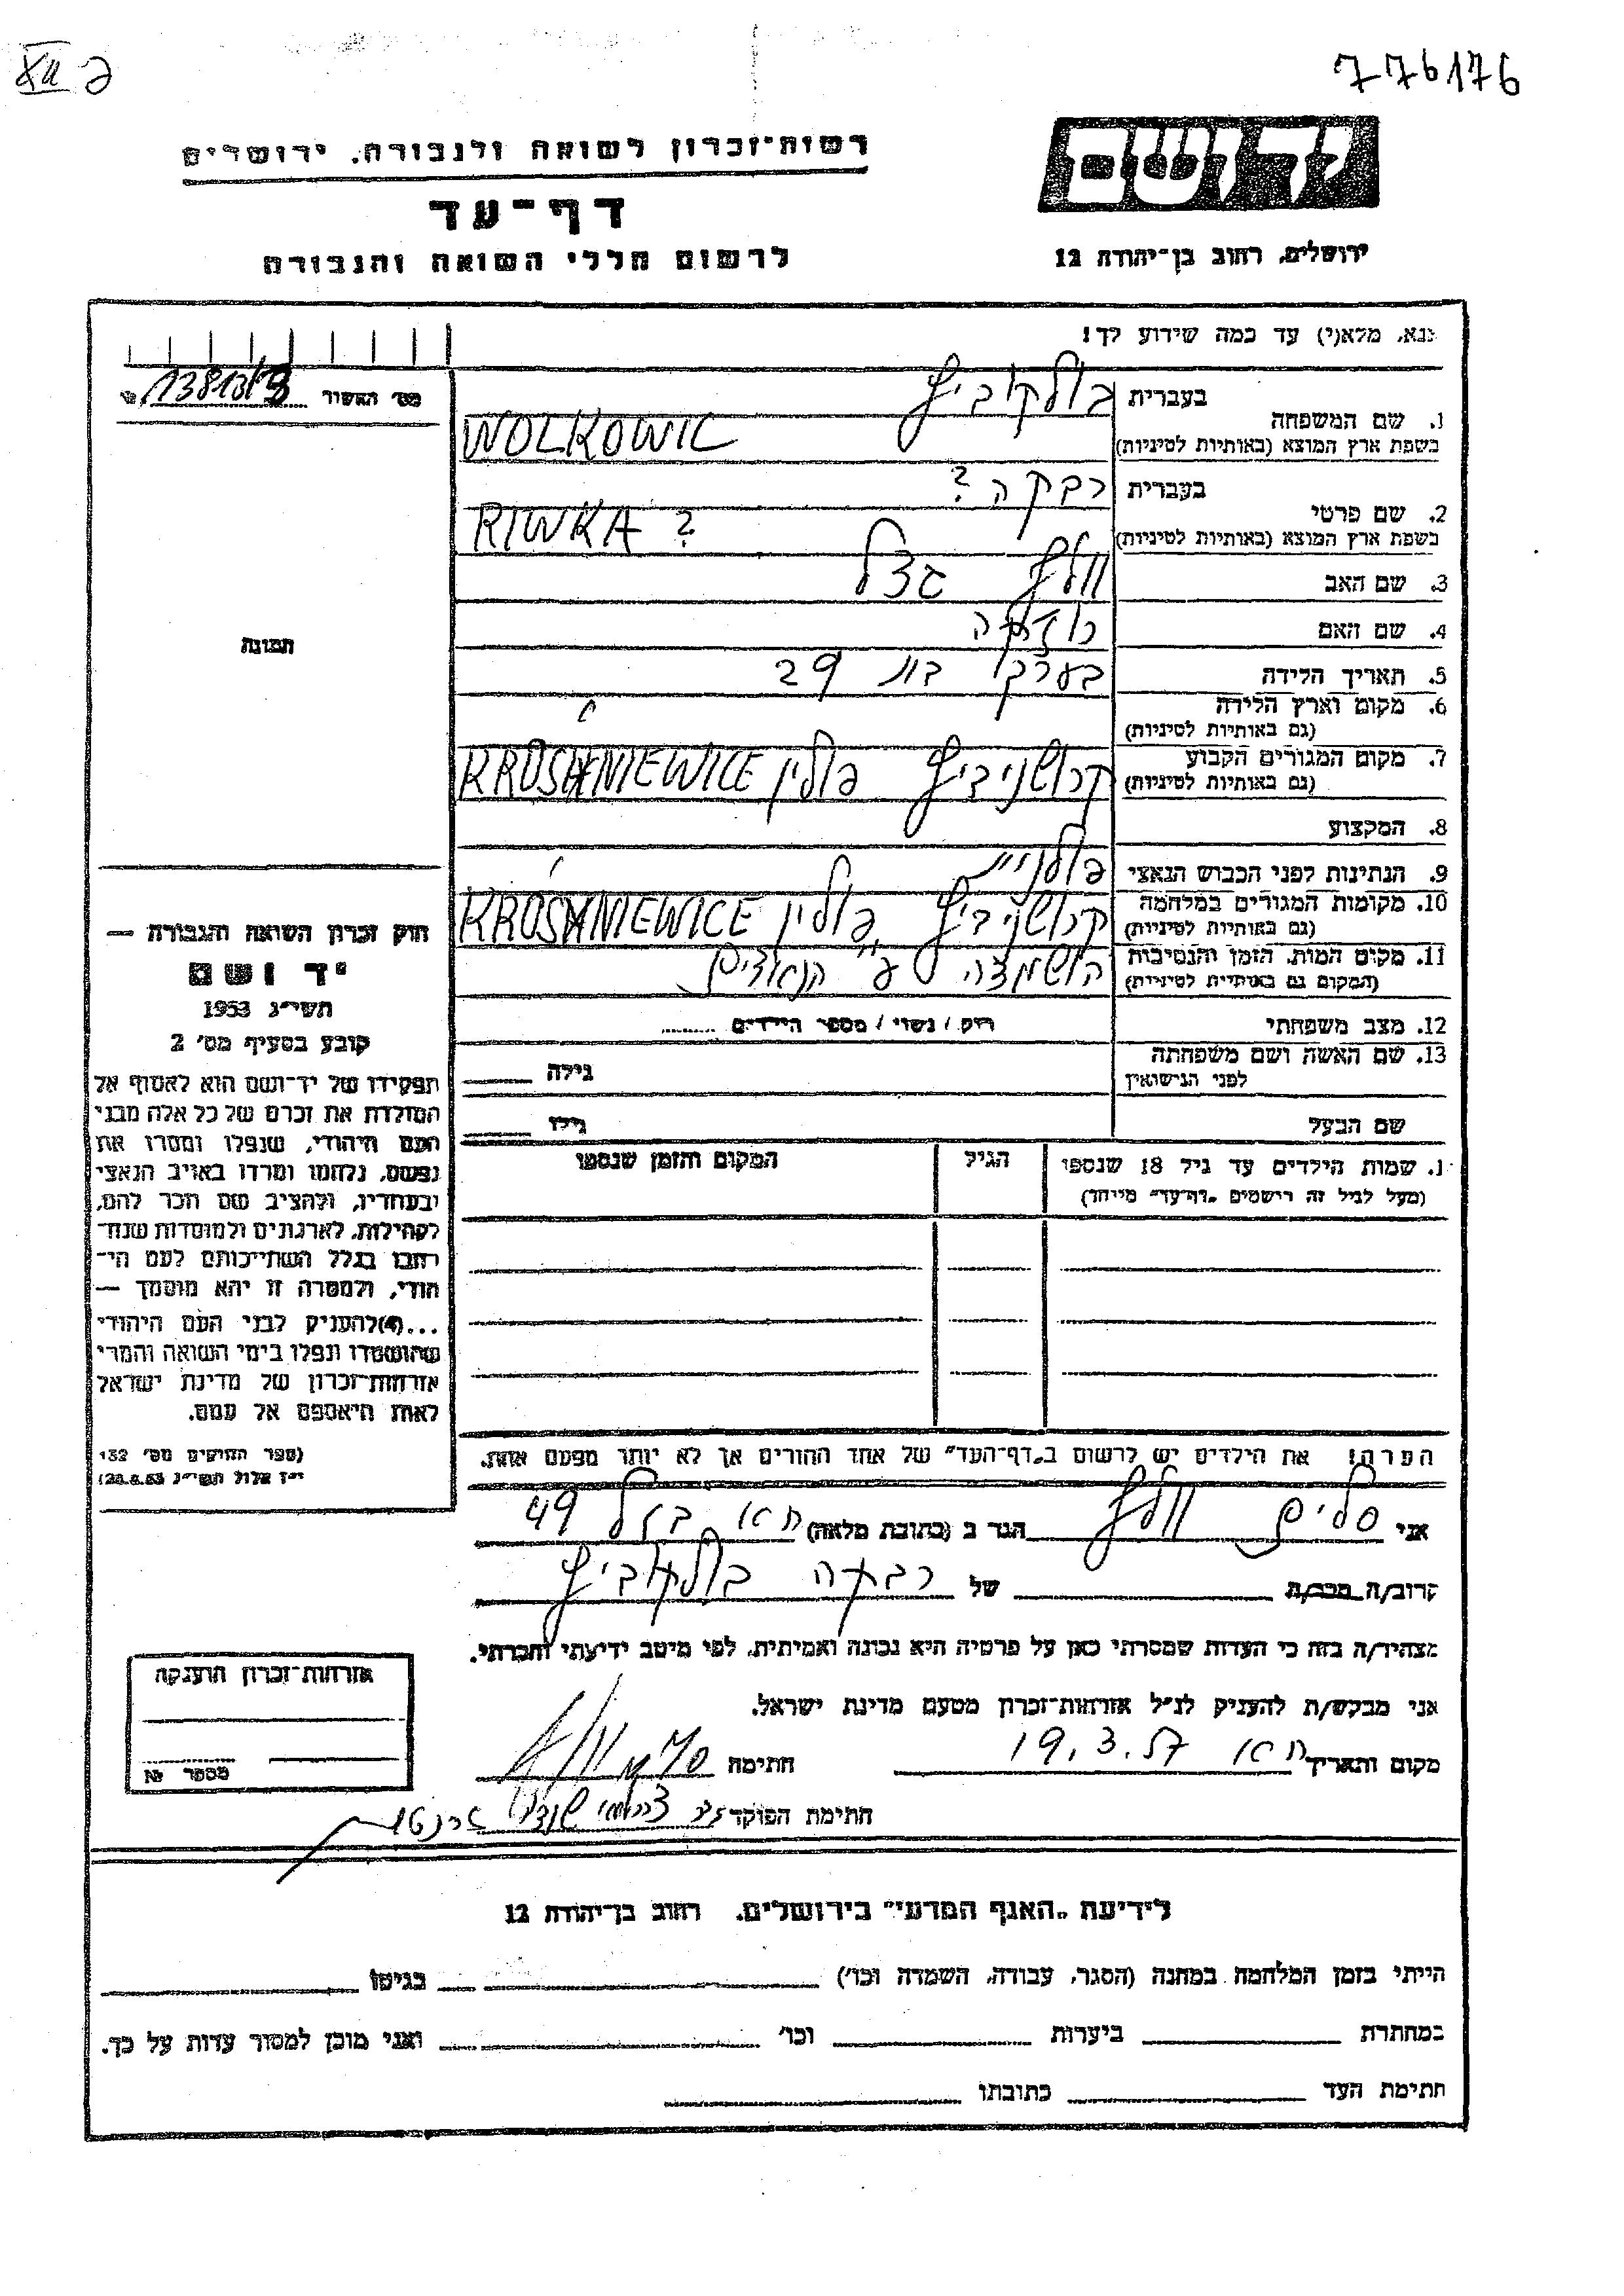 776176
רשות־זכרון לשואה ולגבורה, ירושלים
דף־עד
לרשום חללי השואה והגבורה
יד ושם
ירושלים, רחוב בן־יהודה 12
נא, מלא(י) עד כמה שידוע לך!
מס' האשור
1. שם המשפחה
בעברית
וולקוביץ
בשפת ארץ המוצא (באותיות לטיניות)
WOLKOWIC
2. שם פרטי
בעברית
רבקה ?
בשפת ארץ המוצא (באותיות לטיניות)
RIWKA ?
3. שם האב
וולף
4. שם האם
5. תאריך הלידה
בערך בת 29
6. מקום וארץ הלידה
(גם באותיות לטיניות)
7. מקום המגורים הקבוע
(גם באותיות לטיניות)
קרושניביץ פולין KROSHNIEWICE
8. המקצוע
9. הנתינות לפני הכבוש הנאצי
10. מקומות המגורים במלחמה
(גם באותיות לטיניות)
קרושניביץ פולין KROSHNIEWICE
11. מקום המות, הזמן והנסיבות
(המקום גם באותיות לטיניות)
הושמדה ע"י הנאצים
12. מצב משפחתי
רווק / נשוי / מספר הילדים
13. שם האשה ושם משפחתה
לפני הנישואין
גילה
שם הבעל
גילו
שמות הילדים עד גיל 18 שנספו
(מעל לגיל זה רישמים "דף־עד" מיוחד)
הגיל
המקום והזמן שנספו
תמונה
חוק זכרון השואה והגבורה —
יד ושם
תשי"ג 1953
קובע בסעיף מס' 2
תפקידו של יד־ושם הוא לאסוף אל
המולדת את זכרם של כל אלה מבני
העם היהודי, שנפלו ומסרו את
נפשם, נלחמו ומרדו באויב הנאצי
ובעוזריו, ולהציב שם וזכר להם,
לקהילות, לארגונים ולמוסדות שנח־
רבו בגלל השתייכותם לעם הי־
הודי, ולמטרה זו יהא מוסמך —
...(4)להעניק לבני העם היהודי
שהושמדו ונפלו בימי השואה והמרי
אזרחות־זכרון של מדינת ישראל
לאות היאספם אל עמם.
(ספר החוקים מס' 132
י"ז אלול תשי"ג 28.8.53)
הערה! את הילדים יש לרשום ב"דף־העד" של אחד ההורים אך לא יותר מפעם אחת.
אני סלים וולף הגר ב (כתובת מלאה) ת"א 49
קרוב/ה מכר/ה של רבקה וולקוביץ
מצהיר/ה בזה כי העדות שמסרתי כאן על פרטיה היא נכונה ואמיתית, לפי מיטב ידיעתי והכרתי.
אני מבקש/ת להעניק לנ"ל אזרחות־זכרון מטעם מדינת ישראל.
מקום ותאריך ת"א 19.3.57 חתימה
חתימת הפוקד
אזרחות־זכרון הוענקה
מספר №
לידיעת "האגף המדעי" בירושלים, רחוב בן־יהודה 12
הייתי בזמן המלחמה במחנה (הסגר, עבודה, השמדה וכו') בגיטו
במחתרת ביערות וכו' ואני מוכן למסור עדות על כך.
חתימת העד כתובתו